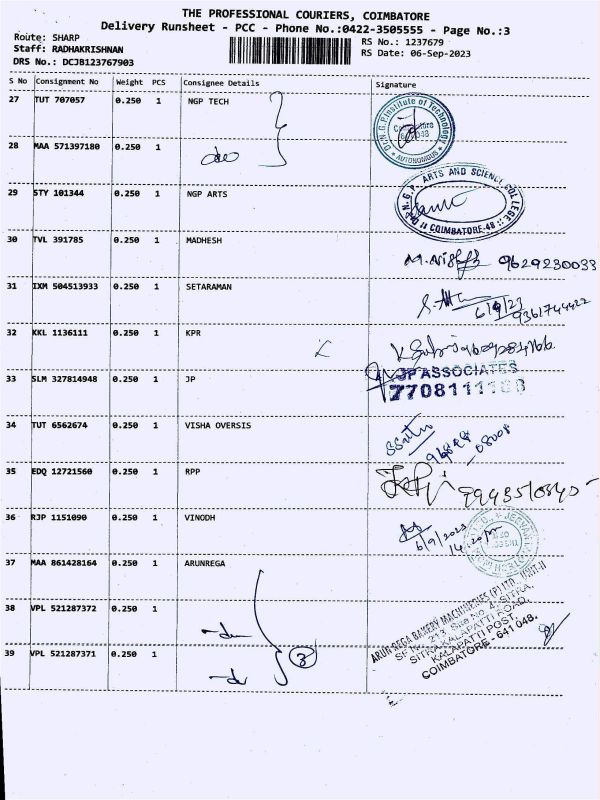 THE PROFESSIONAL COURIERS, COIMBATORE
Delivery Runsheet - PCC - Phone No.:0422-3505555 - Page No.:3
Route: SHARP
RS No.: 1237679
Staff: RADHAKRISHNAN
RS Date: 06-Sep-2023
DRS No.: DCJB123767903
S No Consignment No Weight PCS Consignee Details Signature
27 TUT 707057 0.250 1 NGP TECH
Dr.N.G.P.Institute of Technology
AUTONOMOUS
28 MAA 571397180 0.250 1
29 STY 101344 0.250 1 NGP ARTS
Dr. N.G.P. ARTS AND SCIENCE COLLEGE
COIMBATORE-48
30 TVL 391785 0.250 1 MADHESH
9629230033
31 IXM 504513933 0.250 1 SETARAMAN
6/9/23
9361744422
32 KKL 1136111 0.250 1 KPR
33 SLM 327814948 0.250 1 JP
JP ASSOCIATES
34 TUT 6562674 0.250 1 VISHA OVERSIS
35 EDQ 12721560 0.250 1 RPP
36 RJP 1151090 0.250 1 VINODH
6/9/2023
14:20pm
37 MAA 861428164 0.250 1 ARUNREGA
38 VPL 521287372 0.250 1
39 VPL 521287371 0.250 1
3
ARUN REGA BAKERY MACHINERIES (P) LTD., (UNIT-II
SITRA, KALAPATTI ROAD,
KALAPATTI POST,
COIMBATORE - 641 048.